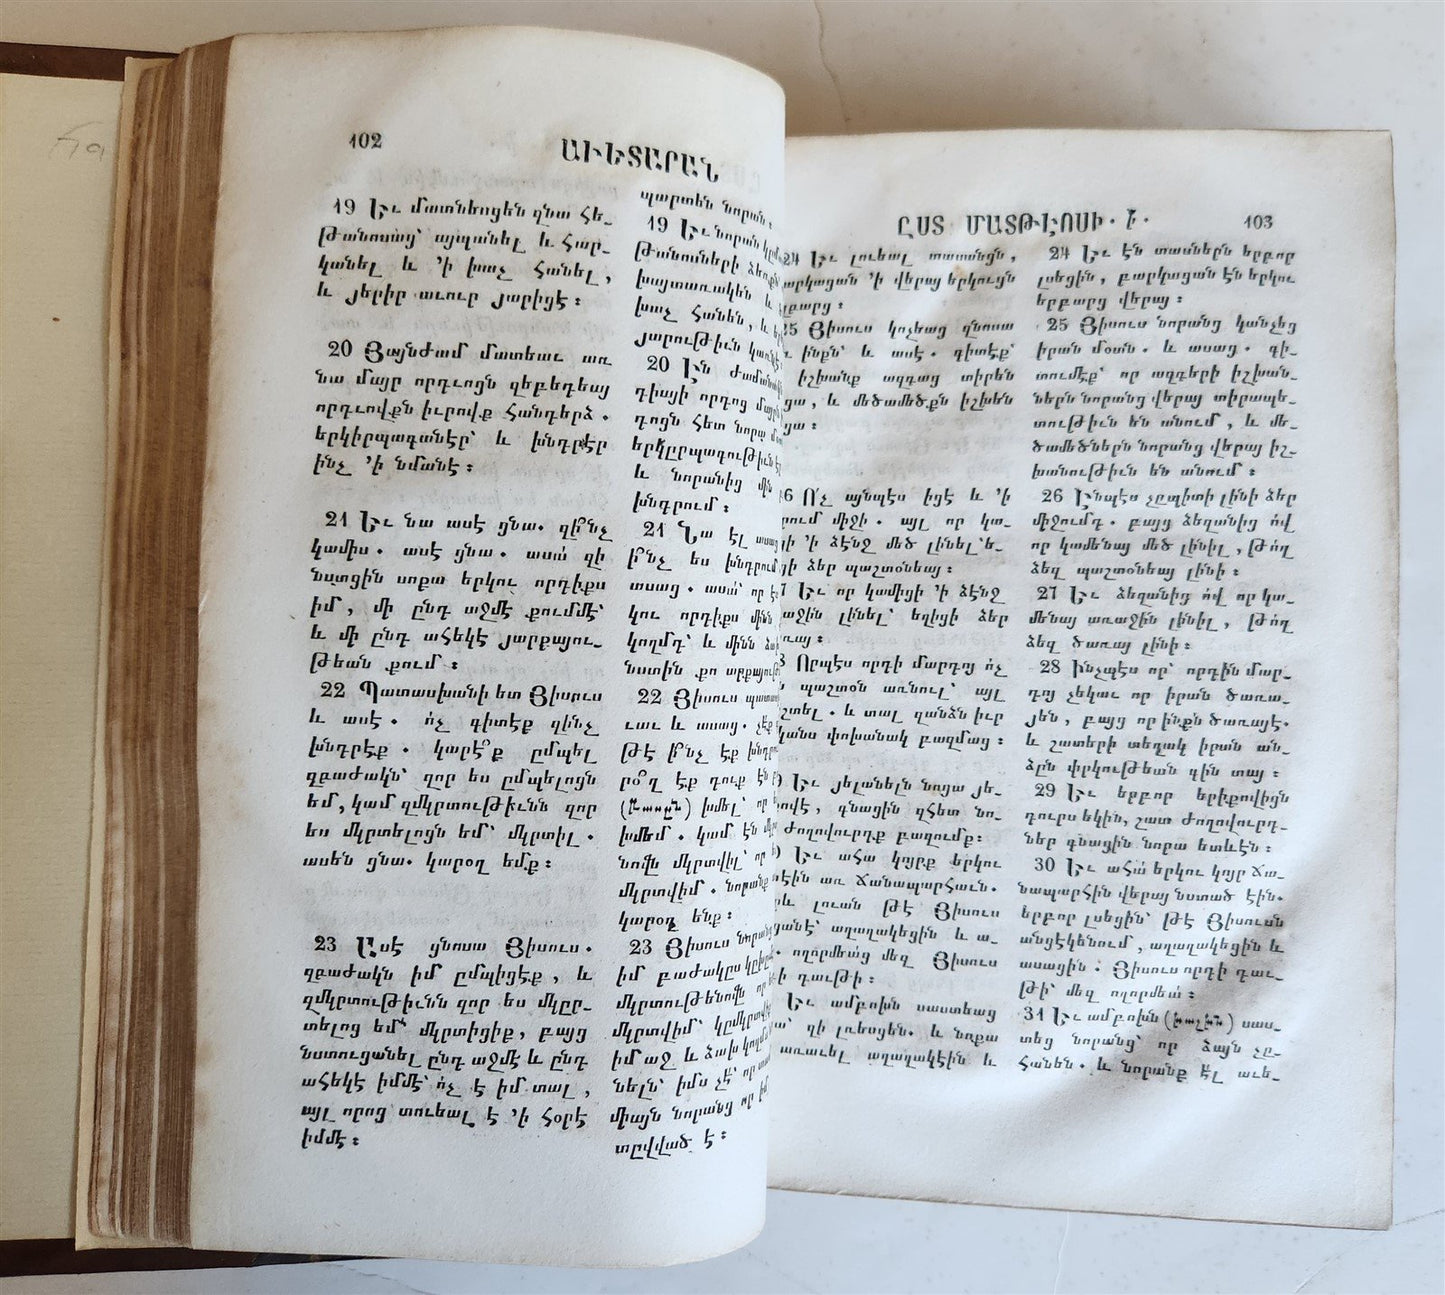 102
ԱՒԵՏԱՐԱՆ
19 Եւ մատնեսցեն զնա հե-
թանոսաց՝ այպանել և հար-
կանել և ՚ի խաչ հանել,
և յերիր աւուր յարիցէ։
20 Յայնժամ մատեաւ առ
նա մայր որդւոցն զեբեդեայ
որդւովքն իւրովք հանդերձ.
երկիրպագանէր՝ և խնդրէր
ինչ ՚ի նմանէ։
21 Եւ նա ասէ ցնա. զի՞նչ
կամիս. ասէ ցնա. ասա՛ զի
նստցին սոքա երկու որդիքս
իմ, մի ընդ աջմէ քումմէ՝
և մի ընդ ահեկէ յարքայու-
թեան քում։
22 Պատասխանի ետ Յիսուս
և ասէ. ո՛չ գիտէք զինչ
խնդրէք. կարէ՞ք ըմպել
զբաժակն՝ զոր ես ըմպելոցն
եմ, կամ զմկրտութիւնն զոր
ես մկրտելոցն եմ՝ մկրտիլ.
ասեն ցնա. կարօղ եմք։
23 Ասէ ցնոսա Յիսուս.
զբաժակն իմ ըմպիցէք, և
զմկրտութիւնն զոր ես մկըր-
տելոց եմ՝ մկրտիցիք, բայց
նստուցանել ընդ աջմէ և ընդ
ահեկէ իմմէ՝ ո՛չ է իմ տալ,
այլ որոց տուեալ է ՚ի հօրէ
իմմէ։
պարտեն նորան։
19 Եւ նորան
թանոսների
խայտառակեն և
խաչ հանեն, և
յարութիւն
20 Էն
դիայի որդոց
դոցն հետ նորա
երկըրպագութիւն
և նորանից մին
խնդրում։
21 Նա էլ ասաց
ի՞նչ ես խնդրում
ասաց. ասա՛ որ
կու որդիքս մինն
կողմդ՝ և մինն
նստին քո
22 Յիսուս
ւաւ և ասաց. չէք
թէ ի՞նչ էք
րօ՞ղ էք դուք էն
խմել՝ որ
խմեմ. կամ էն
նովն մկրտվիլ՝ որ
մկրտվիմ. նորանք
կարօղ ենք։
23 Յիսուս նորանց
իմ բաժակըս
մկրտութենովն որ
մկրտվիմ՝
իմ աջ և ձախ
նելն՝ իմս չէ՝ որ
միայն նորանց որ իմ
տըվված է։
ԸՍՏ ՄԱՏԹԷՈՍԻ. Ի.
103
24 Եւ լուեալ տասանցն,
բարկացան ՚ի վերայ երկուցն
25 Յիսուս կոչեաց զնոսա
ինքն՝ և ասէ. գիտէք՝
իշխանք ազգաց տիրեն
և մեծամեծքն իշխեն
26 Ո՛չ այնպէս իցէ և ՚ի
միջի. այլ որ կա-
՚ի ձէնջ մեծ լինել՝ ե-
ձեր պաշտօնեայ։
27 Եւ որ կամիցի ՚ի ձէնջ
լինել՝ եղիցի ձեր
28 Որպէս որդի մարդոյ ո՛չ
պաշտօն առնուլ՝ այլ
և տալ զանձն իւր
փոխանակ բազմաց։
Եւ յելանելն նոցա յե-
գնացին զհետ նո-
ժողովուրդք բազումք։
Եւ ահա կոյրք երկու
առ ճանապարհաւն.
լուան թէ Յիսուս
աղաղակեցին և ա-
ողորմեա՛ց մեզ Յիսուս
դաւթի։
Եւ ամբոխն սաստեաց
զի լռեսցեն. և նոքա
առաւել աղաղակէին և
24 Եւ էն տասներն երբոր
լսեցին, բարկացան էն երկու
երբարց վերայ։
25 Յիսուս նորանց կանչեց
իրան մօտն. և ասաց. գի-
տումէք՝ որ ազգերի իշխան-
ներն նորանց վերայ տիրապե-
տութիւն են անում, և մե-
ծամեծներն նորանց վերայ իշ-
խանութիւն են անում։
26 Էնպէս չըպիտի լինի ձեր
միջումդ. բայց ձեզանից ո՛վ
որ կամենայ մեծ լինիլ, թո՛ղ
ձեզ պաշտօնեայ լինի։
27 Եւ ձեզանից ո՛վ որ կա-
մենայ առաջին լինիլ, թո՛ղ
ձեզ ծառայ լինի։
28 Ինչպէս որ՝ որդին մար-
դոյ չեկաւ որ իրան ծառա-
յեն, բայց որ ինքն ծառայէ.
և շատերի տեղակ իրան ան-
ձըն փրկութեան գին տայ։
29 Եւ երբոր երիքովիցն
դուրս եկին, շատ ժողովուրդ-
ներ գնացին նորա ետևէն։
30 Եւ ահա՛ երկու կոյր ճա-
նապարհին վերայ նստած էին.
երբոր լսեցին՝ թէ Յիսուսն
անցէկենում, աղաղակեցին և
ասացին. Յիսուս որդի դաւ-
թի՝ մեզ ողորմեա՛։
31 Եւ ամբոխն (խալխն) սաս-
տեց նորանց՝ որ ձայն չը-
հանեն. և նորանք էլ աւե-